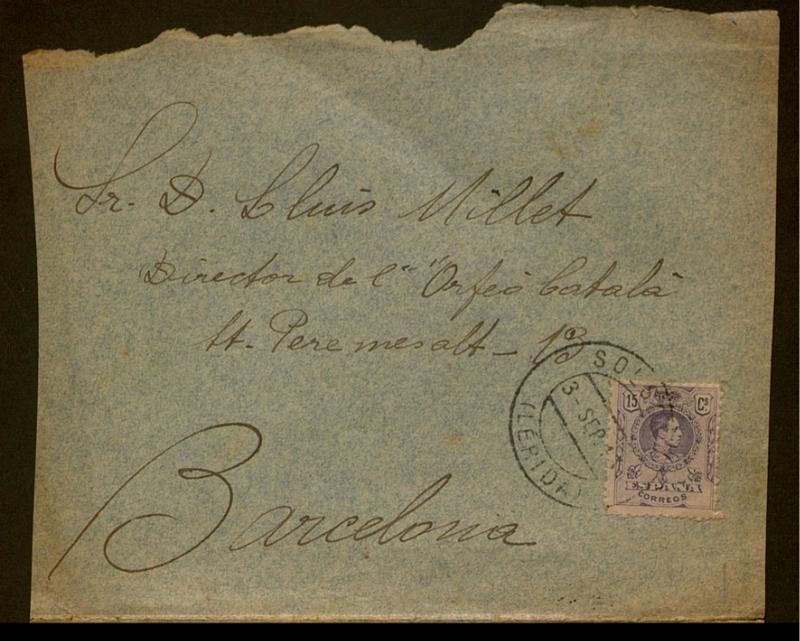 Sr. D. Lluis Millet
Director de l' "Orfeó Català
St. Pere mes alt - 13
Barcelona
3-SEP
(LERIDA)
15 Cs
ESPAÑA
CORREOS